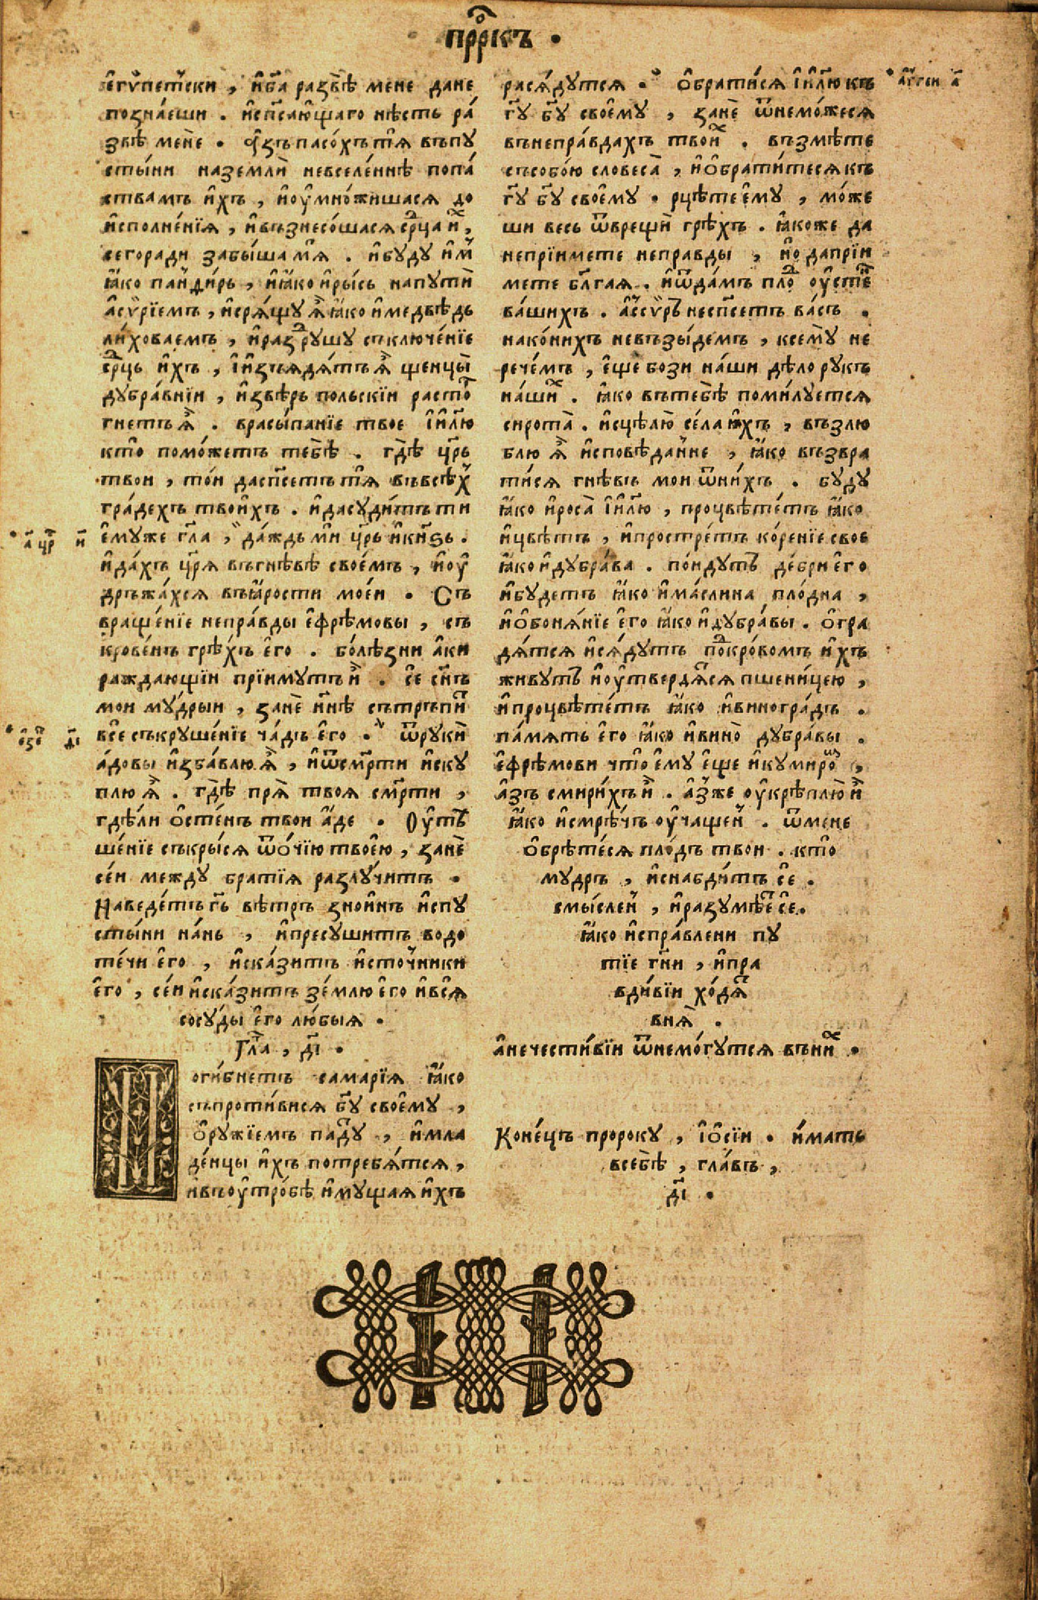 прⷪ҇рикъ ·
египетьски, и҆ бг҃а развѣ мене дане
познаеши . и҆ спс҃ающаго нѣсть ра́
звѣ мене · а҆зъ пасо́хъ тѧ̀ въ пу
сты́ни на землѝ невселеннѣ по па́
ствамъ и҆хъ, и҆ оу҆мно́жишасѧ до
и҆сполне́нїѧ, и҆ възнесо́шасѧ срⷣца и҆хъ,
сего ради забы́ша мѧ̀ . и҆ буду и҆мъ
ꙗ҆́ко панди́рь, и҆ ꙗ҆́ко и҆ ры́сь на путѝ
а҆си́рїемъ, и҆ срѧ́щу ѧ҆̀ ꙗ҆́ко и҆ медвѣдь
ли́ховаемъ, и҆ разрушу съключе́нїе
срⷣць и҆́хъ, и҆ и҆зъꙗдѧ́тъ ѧ҆̀ щенцы̀
дубра́внїи, и҆ звѣрь польскїи расто́
гнетъ ѧ҆̀ . в расы́панїе твое і҆и҃лю
кто̀ помо́жетъ тебѣ̀ . гдѣ̀ цр҃ь
твои, то́и да спс҃етъ тѧ̀ въ всѣхъ
гра́дехъ твои́хъ . и҆ да суди́тъ ти
е҆муже гл҃а, да́ждь мѝ цр҃ь и҆ кнѧ҃ѕь .
и҆ да́хъ цр҃ѧ въ гнѣвѣ свое́мъ, и҆ оу҆
дръжа́хсѧ въ ꙗ҆́рости мое́и · Съ
враще́нїе непра́вды е҆фрѣ́мовы, съ
крове́нъ грѣхъ е҆го . болѣзни а҆́ки
раждающїи прїимутъ и҆̀ . сѐ сн҃ъ
мои му́дрыи, занѐ нн҃ѣ сътрьпѝ
все съкруше́нїе ча́дъ е҆го · ѿ рукѝ
а҆́довы и҆зба́влю ѧ҆̀, и҆ ѿ смр҃ти и҆ску
плю ѧ҆̀ . гдѣ̀ прѧ̀ твоѧ смр҃ти,
гдѣ́ ли о҆сте́нъ твои а҆́де · Оу҆тѣ
ше́нїе съкры́сѧ ѿ о́чїю твое́ю, занѐ
се́и между братїѧ разлучитъ ·
Наведе́тъ гь҃ вѣтръ зно́инъ и҆с пу
сты́ни на́нь, и҆ пресушитъ водо
те́чи е҆го, и҆ ска́зитъ и҆сто́чники
е҆го, се́и и҆ ска́зитъ зе́млю е҆го и҆ всѧ̀
сосу́ды е҆го любы́ѧ ·
Гла҃, д҃і ·
Поги́бнетъ самарїѧ ꙗ҆́ко
съпроти́висѧ бг҃у свое́му,
о҆ружїемъ паду́тъ, и҆ мла
де́нцы и҆́хъ потребѧ́тсѧ,
и҆ въ оу҆тро́бѣ и҆мущаѧ и҆хъ
расѧ́дутсѧ · О҆брати́сѧ і҆и҃лю къ
гд҃у бг҃у свое́му, занѐ и҆знемо́жесѧ
въ непра́вдахъ твои́хъ . възмѣ́те
съ собо́ю словеса̀, и҆ о҆брати́тесѧ къ
гд҃у бг҃у свое́му · рцѣ́те е҆му, мо́же
ши весь ѿврещѝ грѣхъ . ꙗ҆́коже да
непрїимете непра́вды, и҆ да прїи
мете бл҃га́ѧ . и҆ ѿда́мъ плоⷣ оу҆сте́нъ
ва́шихъ . а҆ссу́ръ не спс҃етъ на́съ .
на ко́нихъ невъзы́демъ, ксе́му не
рече́мъ, е҆ще бози на́ши дѣ́ло рукъ
на́шихъ . ꙗ҆́ко въ тебѣ̀ поми́луетсѧ
сирота̀ . и҆сцѣлю̀ се́ла и҆́хъ, възлю
блю ѧ҆̀ и҆сповѣ́данне, ꙗ҆́ко възвра
ти́сѧ гнѣ́въ мои ѿ ни́хъ . буду
ꙗ҆́ко и҆ роса̀ і҆и҃лю, процвѣте́тъ ꙗ҆́ко
и҆ цвѣ́тъ, и҆ простре́тъ ко́ренїе свое
ꙗ҆́ко и҆ дубра́ва . поидутъ де́бри е҆го
и҆ будетъ ꙗ҆́ко и҆ ма́слина пло́дна,
и҆ о҆боня́нїе е҆го ꙗ҆́ко и҆ дубра́вы . о҆гра
дѧ́тсѧ и҆ сѧ́дутъ поⷣ кро́вомъ и҆́хъ
живутъ и҆ оу҆твердѧ́тсѧ пшени́цею,
и҆ процвѣте́тъ ꙗ҆́ко и҆ виногра́дъ .
па́мѧть е҆го ꙗ҆́ко и҆ вино̀ дубра́вы .
е҆фрѣ́мови что̀ е҆му е҆ще и҆ кумиро́мъ,
а҆́зъ смири́хъ и҆̀ . а҆́зъ же оу҆крѣплю́ и҆̀
ꙗ҆́ко и҆ смрѣ́чъ оу҆чаще́нъ . ѿ мене
о҆брѣте́сѧ пло́дъ твои . кто̀
мудръ, и҆ снабди́тъ се .
смы́сленъ, и҆ разумѣ́етъ се .
ꙗ҆́ко и҆спра́влени пу
тїе гн҃и, и҆ пра
вди́вїи хо́дѧтъ
в нѧ̀ .
а҆ нечести́вїи и҆знемо́гутсѧ въ ни́хъ ·
Коне́цъ пророку, і҆о҆сїи · и҆мать
в себѣ̀, гла́въ,
д҃і ·